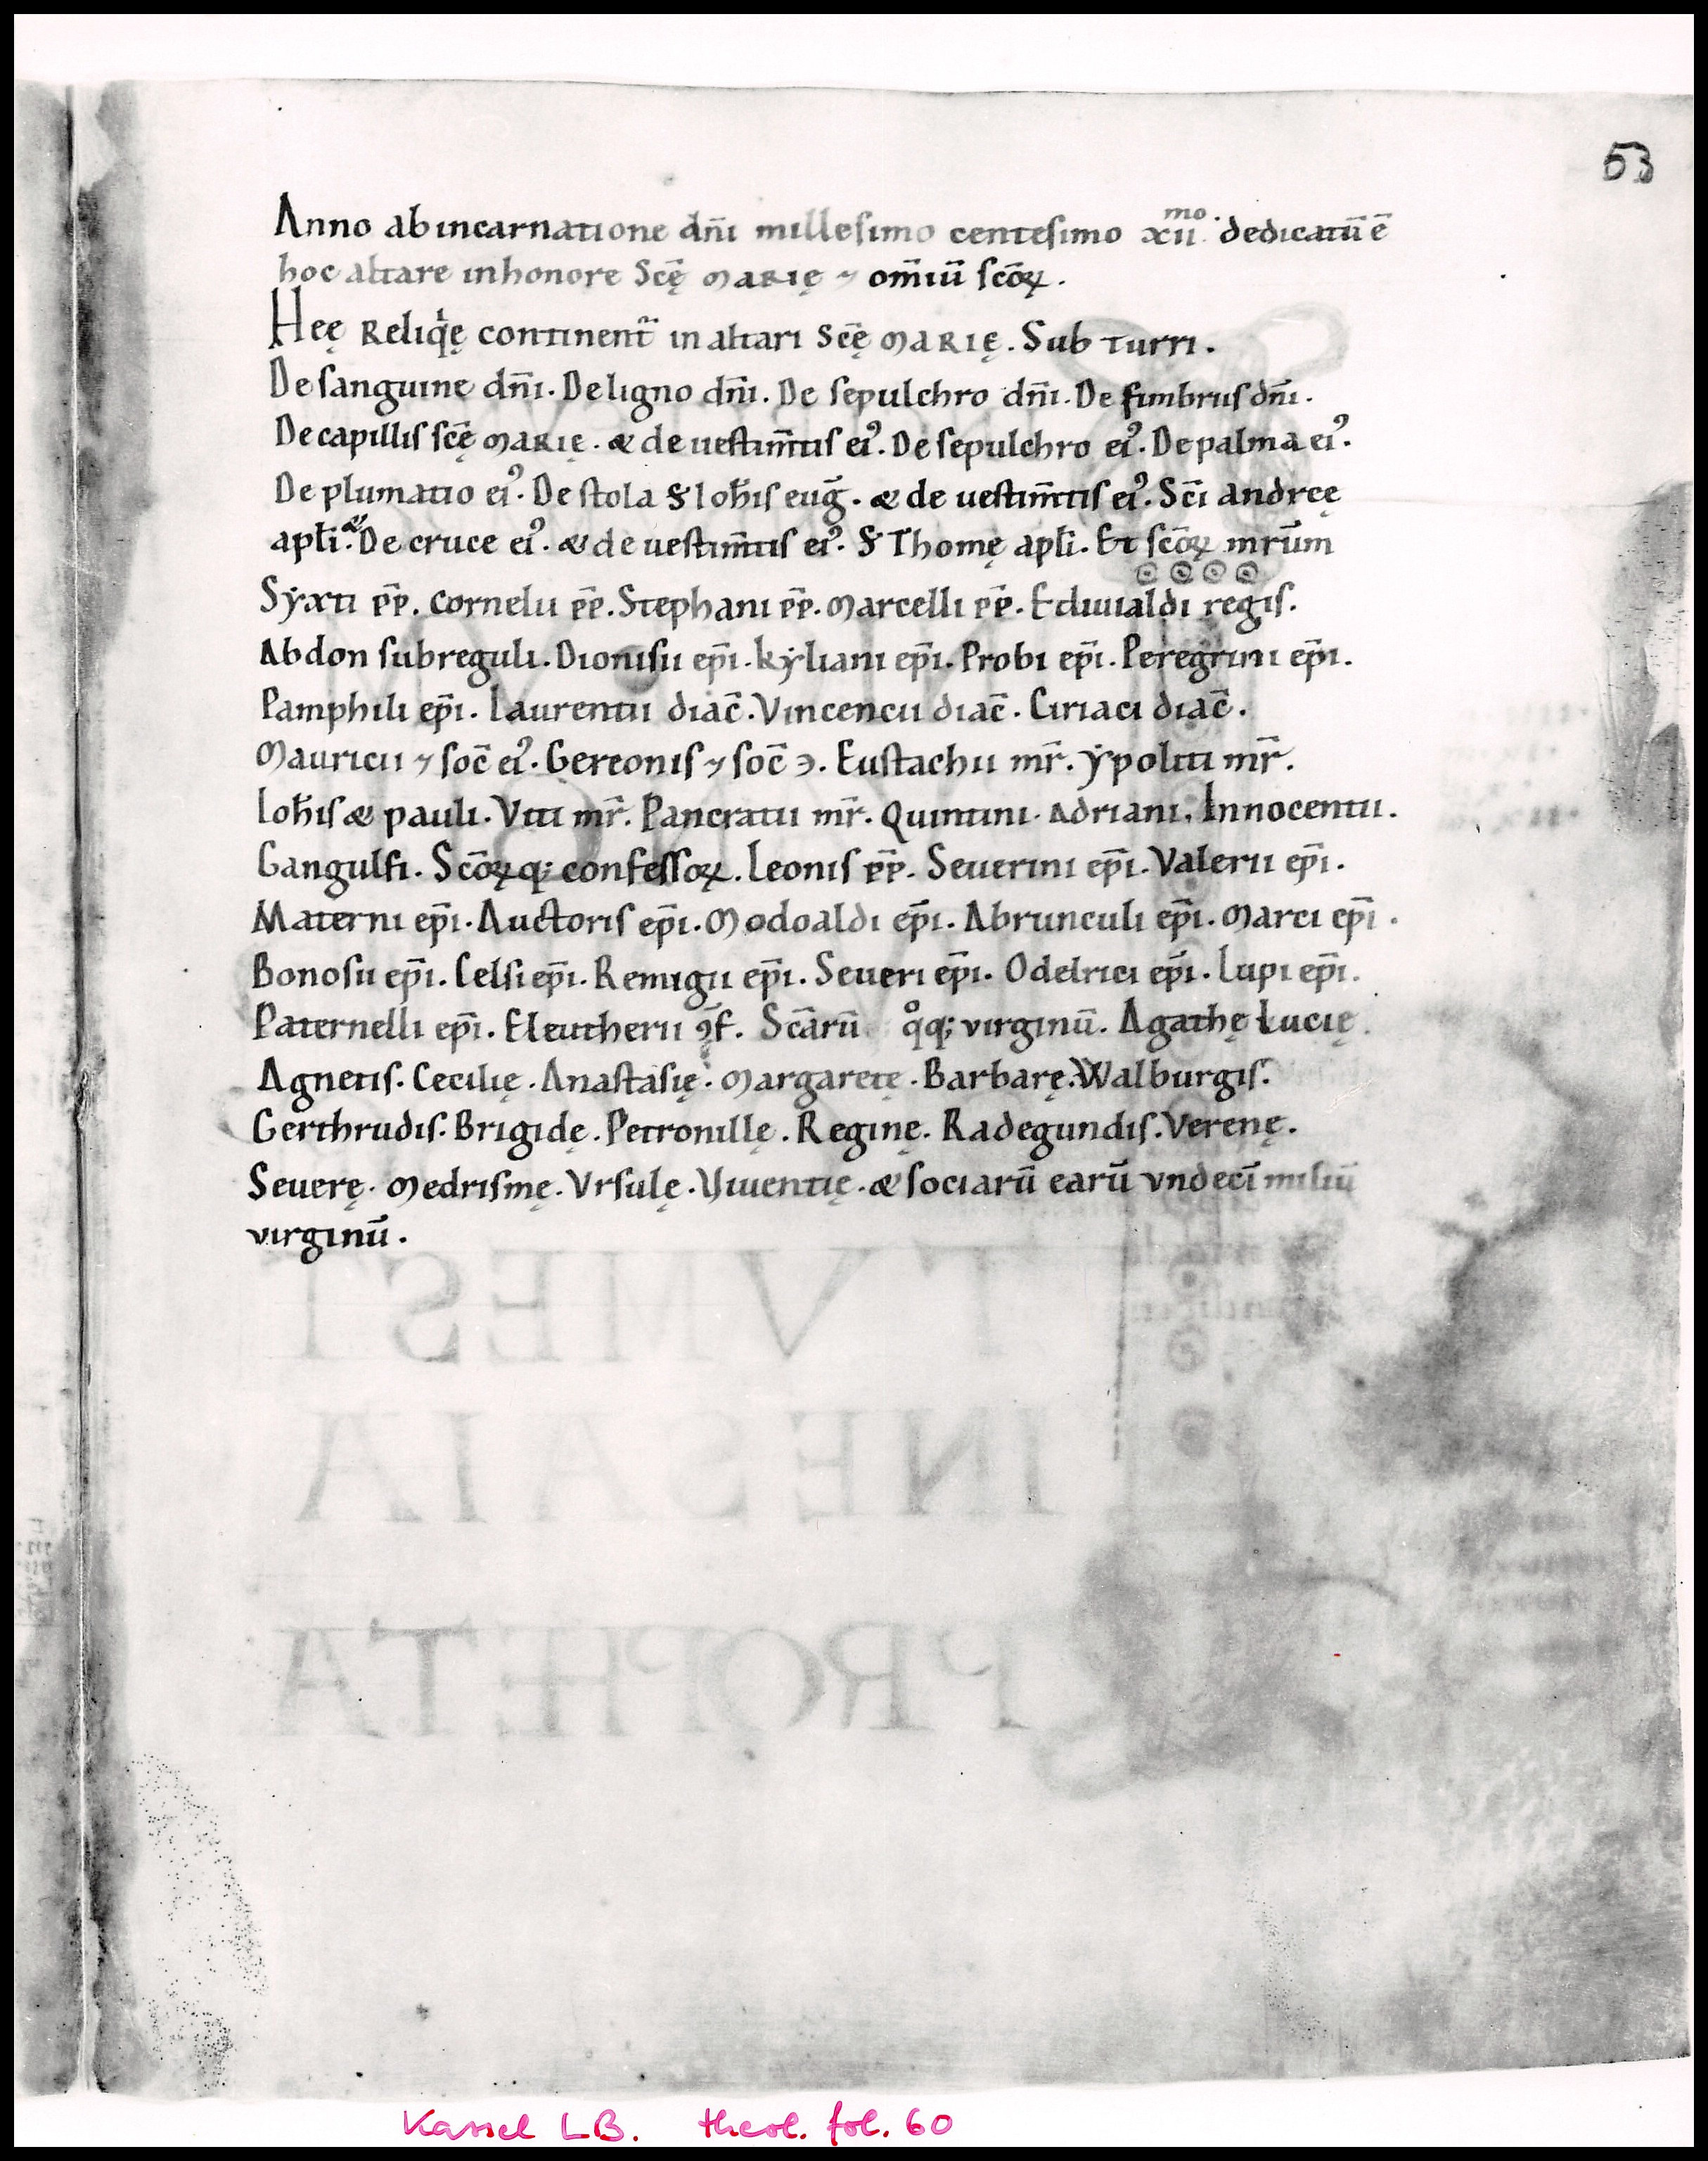 53
Anno ab incarnatione dn̄i millesimo centesimo xii.ᵐᵒ dedicatū ē
hoc altare in honore Scę̄ MARIĘ ⁊ om̄iū scōꝝ.
Heę Reliqͥę continent᷑ in altari Scę̄ MARIĘ. Sub turri.
De sanguine dn̄i. De ligno dn̄i. De sepulchro dn̄i. De fimbriis dn̄i.
De capillis scę̄ MARIĘ. & de uestim̄tis ei᷒. De sepulchro ei᷒. De palma ei᷒.
De plumatio ei᷒. De stola S Ioh̄is euḡ. & de uestim̄tis ei᷒. Sc̄i andreę
apl̄i. & De cruce ei᷒. & de uestim̄tis ei᷒. S Thomę apl̄i. Et scōꝝ mr̄um
Sẏxti p̄p̄. Cornelii p̄p̄. Stephani p̄p̄. Marcelli p̄p̄. Eduualdi regis.
Abdon subreguli. Dionisii ep̄i. kẏliani ep̄i. Probi ep̄i. Peregrini ep̄i.
Pamphili ep̄i. Laurentii diac̄. Vincencii diac̄. Ciriaci diac̄.
Mauricii ⁊ soc̄ ei᷒. Gereonis ⁊ soc̄ ꝯ. Eustachii mr̄. ẏpoliti mr̄.
Ioh̄is & pauli. Viti mr̄. Pancratii mr̄. Quintini. Adriani. Innocentii.
Gangulfi. Scōꝝq; confessoꝝ. Leonis p̄p̄. Seuerini ep̄i. Valerii ep̄i.
Materni ep̄i. Auctoris ep̄i. Modoaldi ep̄i. Abrunculi ep̄i. Marci ep̄i.
Bonosii ep̄i. Celsi ep̄i. Remigii ep̄i. Seueri ep̄i. Odelrici ep̄i. Lupi ep̄i.
Paternelli ep̄i. Eleutherii ꝯf. Scārū qͦq; virginū. Agathę Lucię.
Agnetis. Cecilię. Anastasię. Margaretę. Barbarę. Walburgis.
Gerthrudis. Brigidę. Petronillę. Reginę. Radegundis. Verenę.
Seuerę. Medrismę. Vrsulę. Viuentię. & sociarū earū vndecī miliū
virginū.
T VM EST
IN ESAIA
PROPHETA
Kassel LB. theol. fol. 60